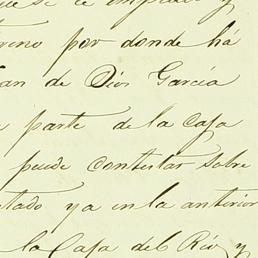 se le
y
por donde há
de Dios García
parte de la Casa
puede contestar sobre
ya en la anterior
la Casa del Rio y